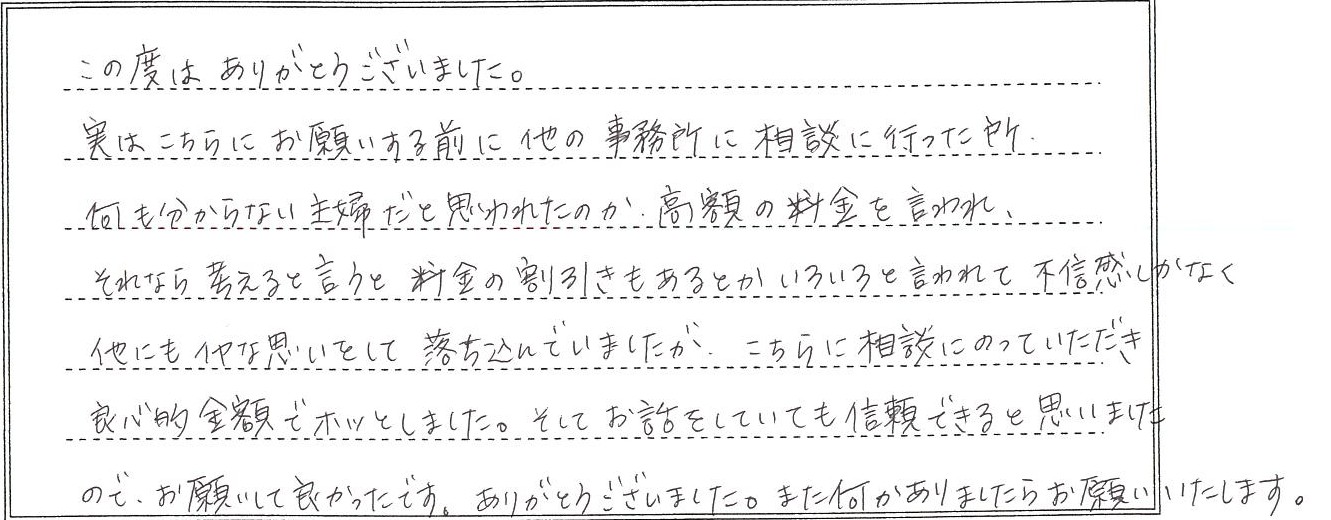 この度は ありがとうございました。
実は こちらに お願いする前に 他の 事務所に 相談に行った所、
何も分からない主婦だと思われたのか、高額の料金を言われ、
それなら 考えると言うと 料金の割引きもあるとか いろいろと言われて 不信感しかなく
他にも イヤな思いをして 落ち込んでいましたが、こちらに相談にのっていただき
良心的金額でホッとしました。そして お話をしていても信頼できると思いました
ので、お願いして良かったです。ありがとうございました。また何かありましたらお願いいたします。